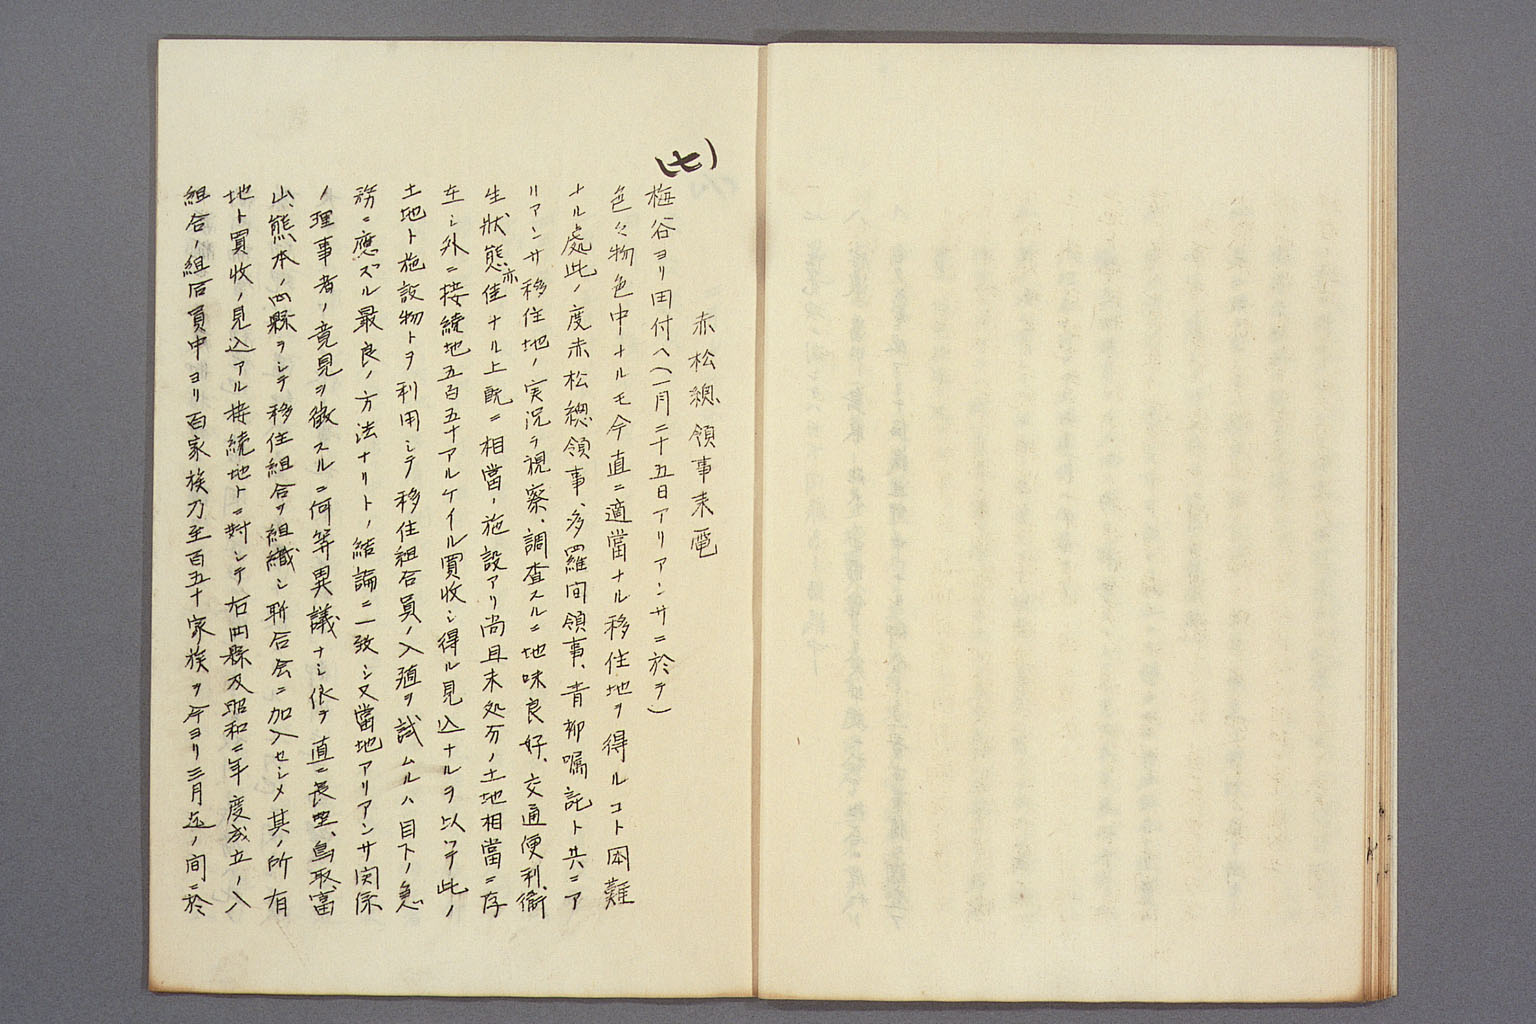 (七)
赤松總領事来電
梅谷ヨリ田付ヘ(一月二十五日アリアンサニ於テ)
色々物色中ナルモ今直ニ適當ナル移住地ヲ得ルコト困難
ナル處此ノ度赤松總領事、多羅間領事、青柳嘱託ト共ニア
リアンサ移住地ノ実况ヲ視察、調査スルニ地味良好、交通便利、衛
生狀態亦佳ナル上既ニ相當ノ施設アリ尚且未処分ノ土地相當ニ存
在シ外ニ接続地五百五十アルケイル買收シ得ル見込ナルヲ以テ此ノ
土地ト施設物トヲ利用シテ移住組合員ノ入殖ヲ試ムルハ目下ノ急
務ニ應ズル最良ノ方法ナリトノ結論ニ一致シ又當地アリアンサ関係
ノ理事者ノ意見ヲ徴スルニ何等異議ナシ依テ直ニ長野、鳥取、富
山、熊本ノ四縣ヲシテ移住組合ヲ組織シ聨合会ニ加入セシメ其ノ所有
地ト買收ノ見込アル接続地トニ對シテ右四縣及昭和二年度成立ノ八
組合ノ組合員中ヨリ百家族乃至百五十家族ヲ今ヨリ三月迄ノ間ニ於